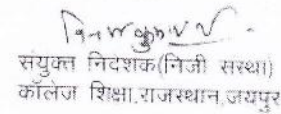 संयुक्त निदेशक(निजी संस्था)
कॉलेज शिक्षा,राजस्थान,जयपुर